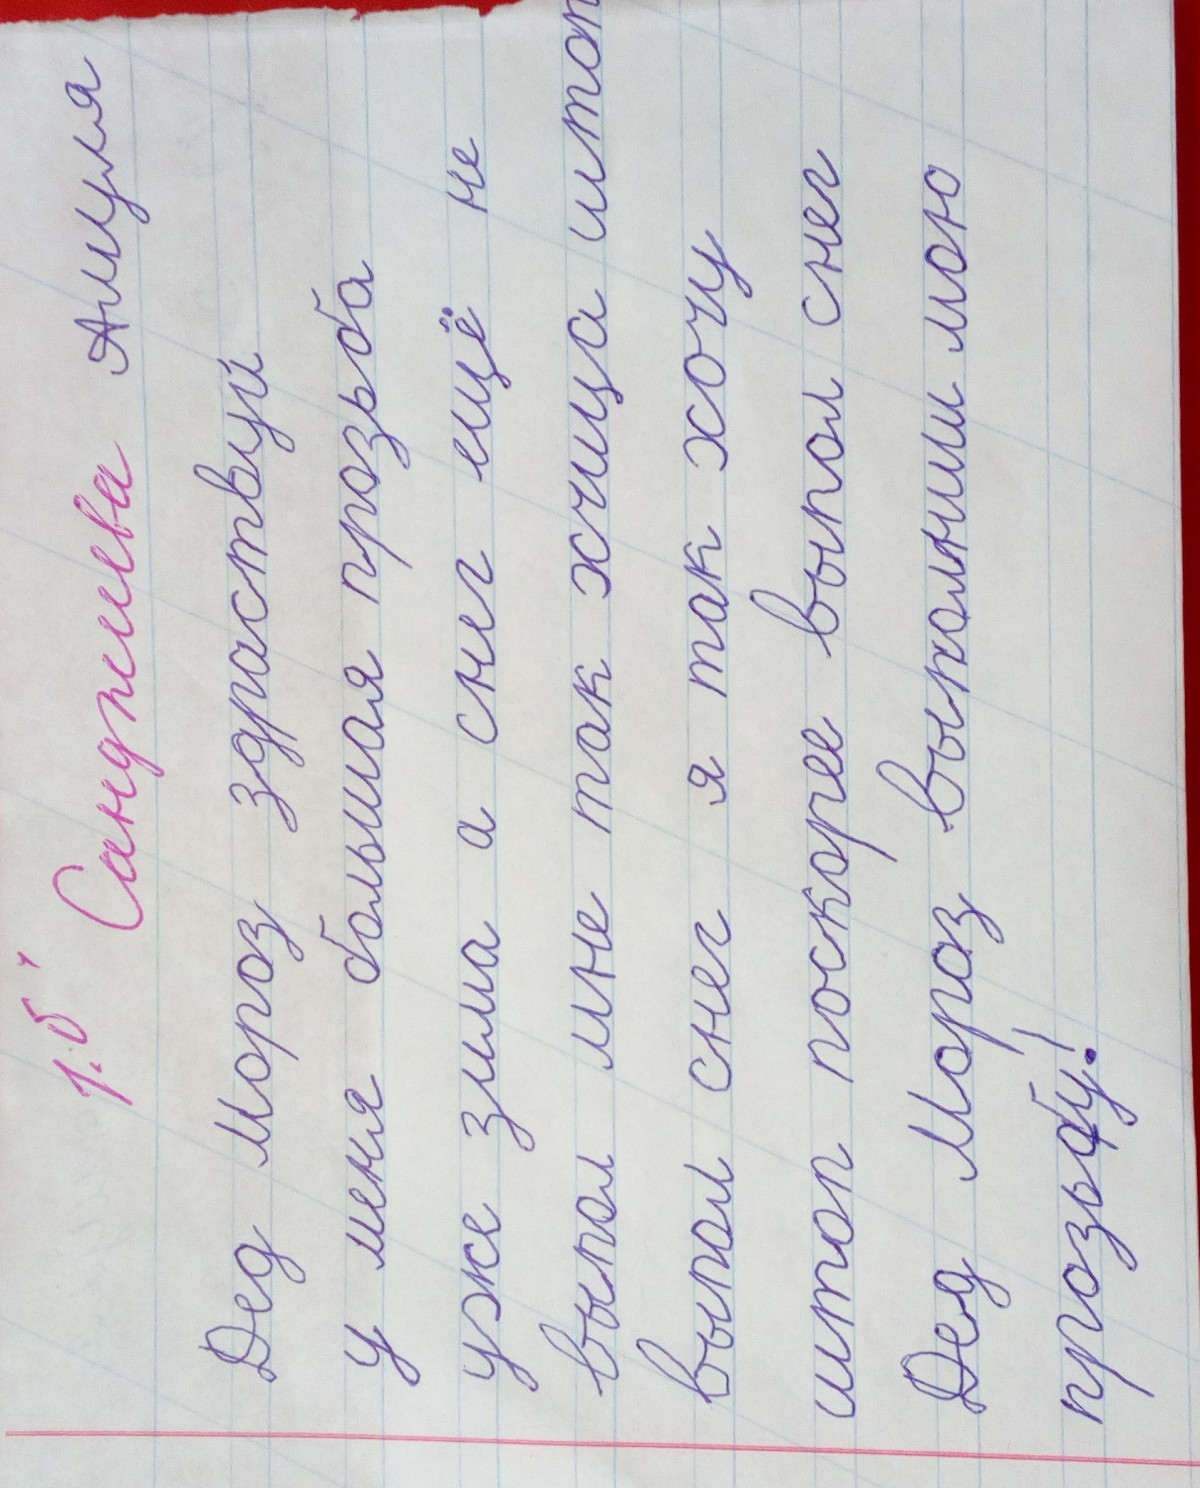 1 "б" Санджиева Амуля
Дед Мороз здраствуй
у меня большая прозьба
уже зима а снег ещё не
выпол мне так хчица штоп
выпол снег я так хочу
штоп поскорее выпол снег
Дед Мороз выполними мою
прозьбу!